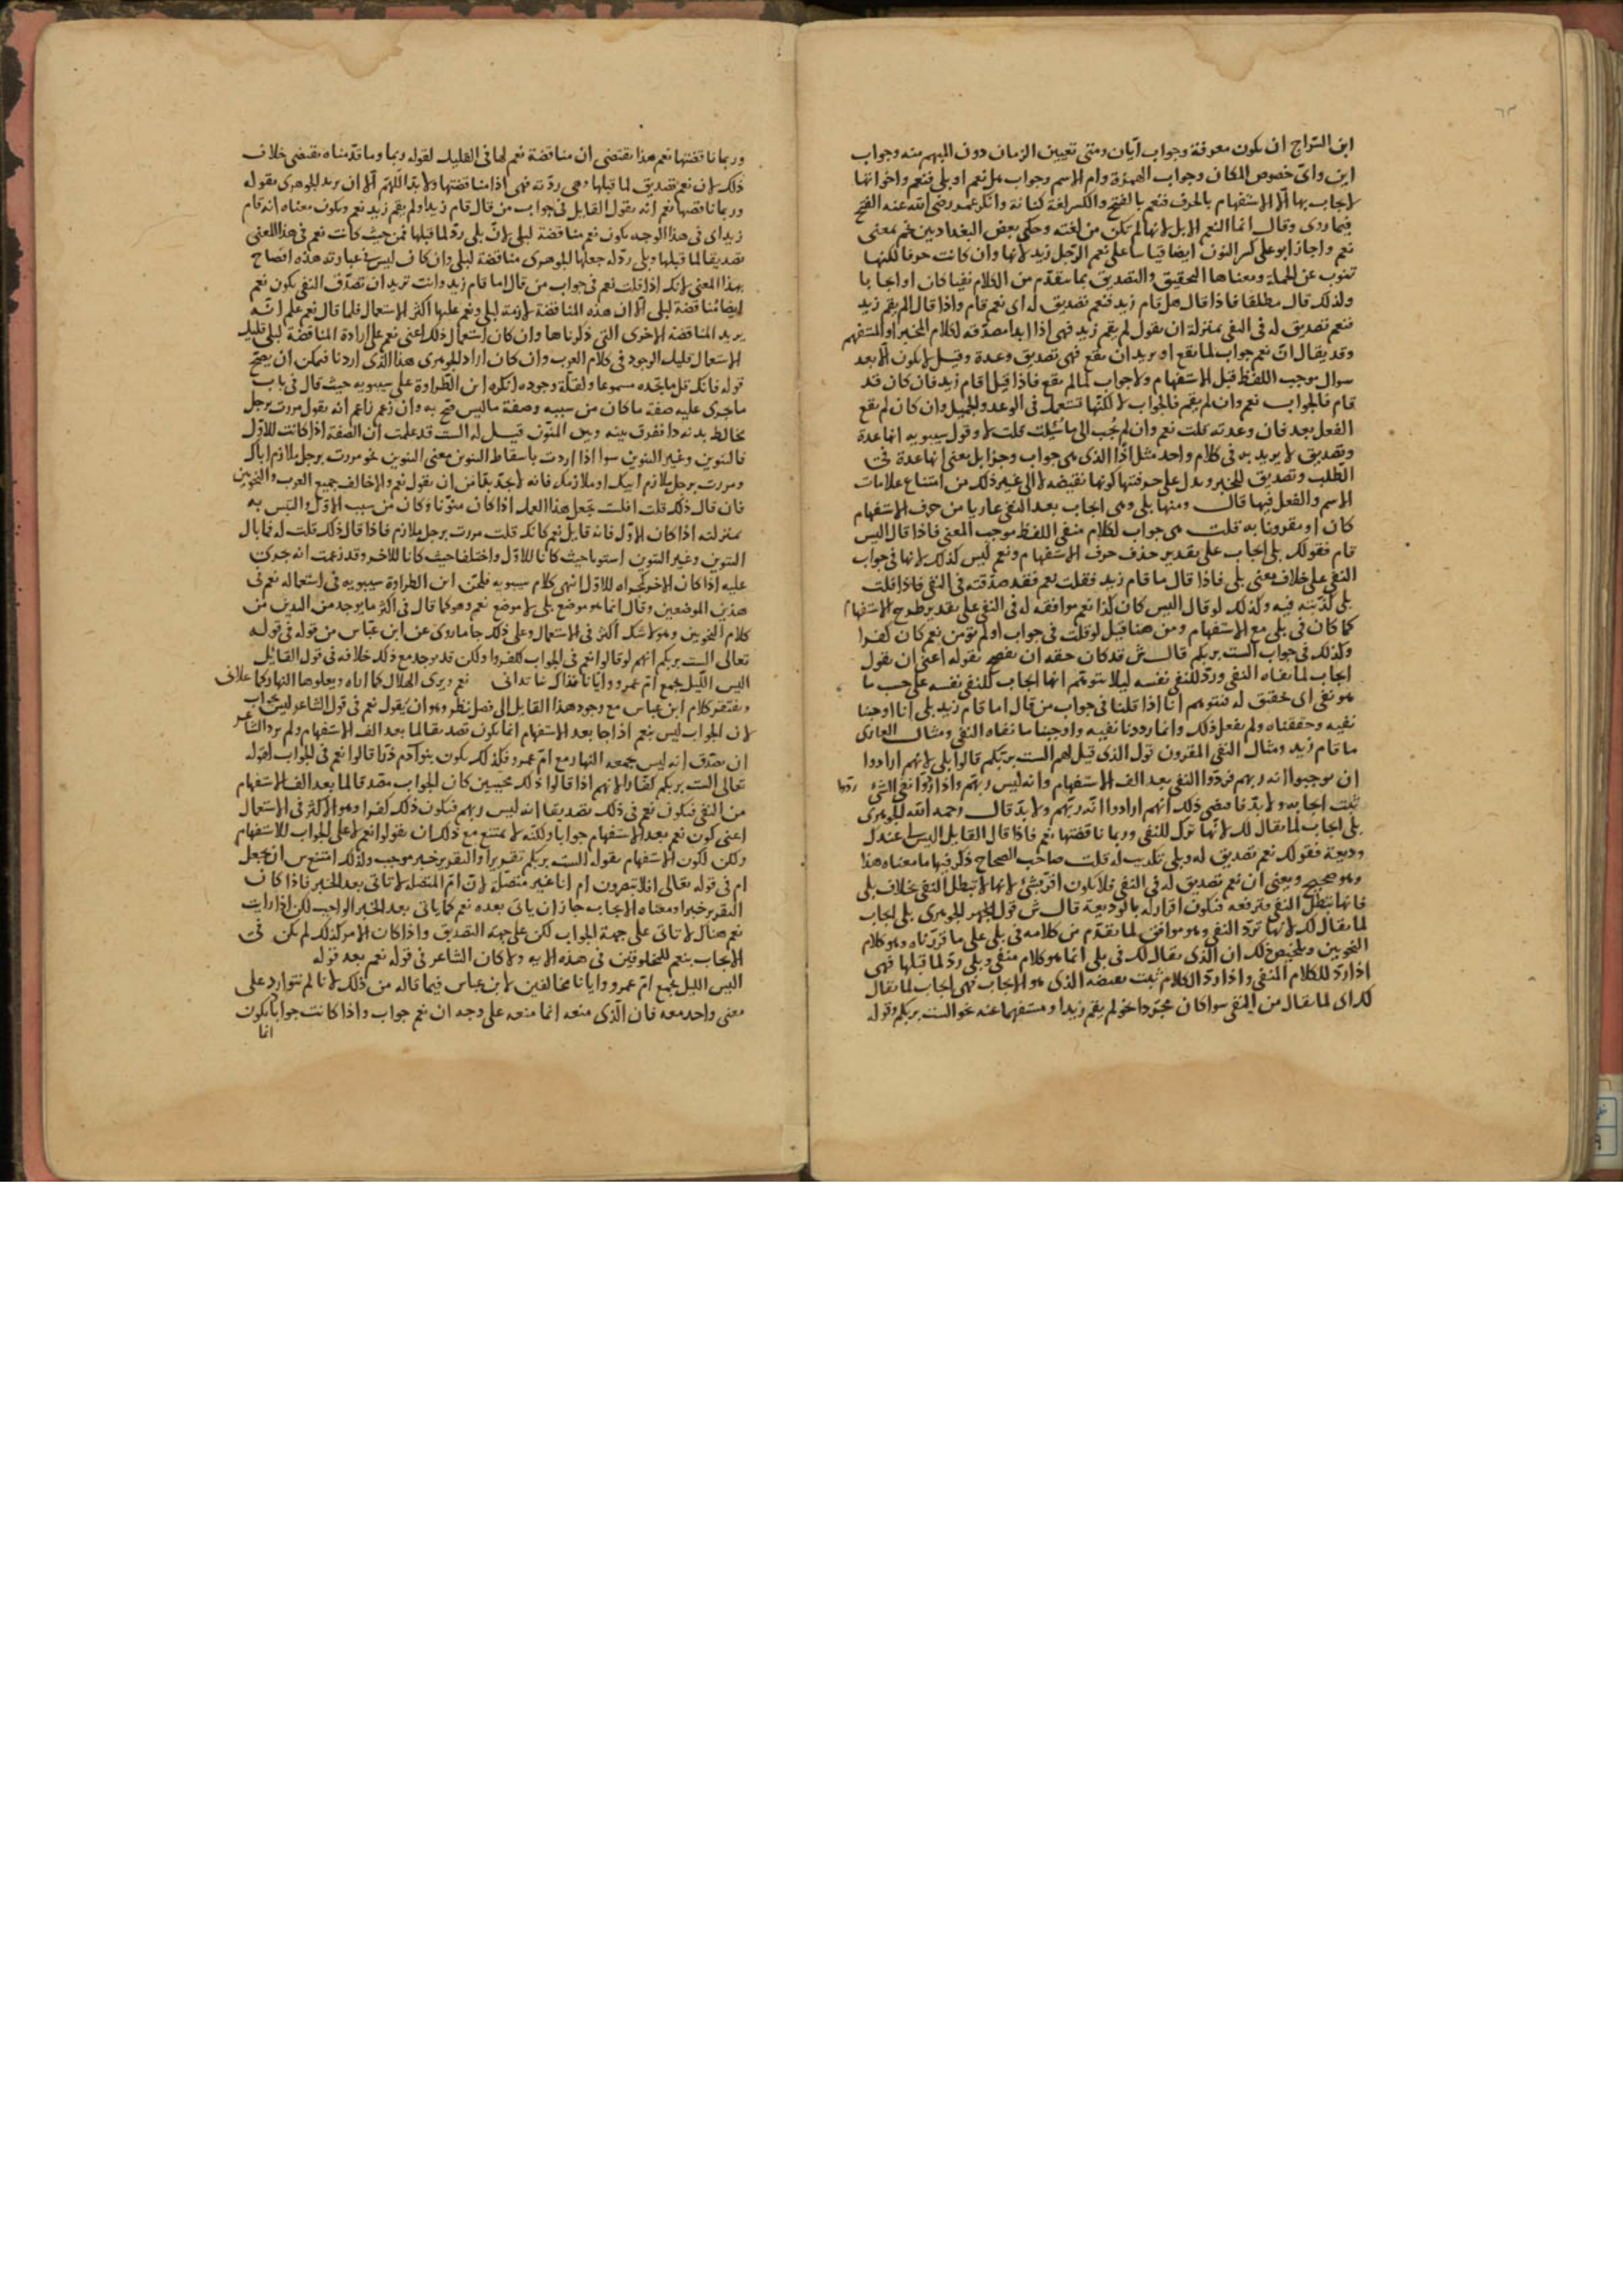 ٦٣
ابن السراج ان يكون معرفة وجواب ايان ومتى تعيين الزمان دون المبهم منه وجواب
اين واى خصوص المكان وجواب الهمزة وام الاسم وجواب هل نعم او بلى فنعم واخواتها
لايجاب بها الا الاستفهام بالحرف فنعم بالفتح والكسر لغة كنانة وانكر عمر رضى الله عنه الفتح
فيما روى وقال انما النعم الابل لانها لم تكن من لغته وحكى بعض البغداديين نحم بمعنى
نعم واجاز ابو على كسر النون ايضا قياسا على نعم الرجل زيد لانها وان كانت حرفا لكنها
تنوب عن الجملة ومعناها التحقيق والتصديق بما تقدم من الكلام نفيا كان او ايجابا
ولذلك قال مطلقا فاذا قال هل قام زيد فنعم تصديق له اى نعم قام واذا قال الم يقم زيد
فنعم تصديق له فى النفى بمنزلة ان يقول لم يقم زيد فهى اذا ابدا مصدقه لكلام المخبر او المستفهم
وقد يقال ان نعم جواب لما يقع او يريد ان يقع فهى تصديق وعدة وقيل لا يكون الا بعد
سوال موجب اللفظ قبل الاستفهام ولا جواب لما لم يقع فاذا قيل اقام زيد فان كان قد
قام فالجواب نعم وان لم يقم فالجواب لا لكنها تستعمل فى الوعد والجميل وان كان لم يقع
الفعل بعد فان وعدته قلت نعم وان لم تجب الى ما سئلت قلت لا وقول سيبويه انها عدة
وتصديق لا يريد به فى كلام واحد مثل اذا الذى هى جواب وجزا بل يعنى انها عدة فى
الطلب وتصديق للخبر ويدل على حرفيتها كونها نقيضه لا الى غير ذلك من امتناع علامات
الاسم والفعل فيها قال ومنها بلى وهى ايجاب بعد النفى عاريا من حرف الاستفهام
كان او مقرونا به قلت هى جواب لكلام منفى اللفظ موجب المعنى فاذا قال اليس
قام فقولك بلى ايجاب على تقدير حذف حرف الاستفهام ونعم ليس كذلك لانها فى جواب
النفى على خلاف معنى بلى فاذا قال ما قام زيد فقلت نعم فقد صدقته فى النفى فاذا قلت
بلى كذبته فيه وكذلك لو قال اليس كان كذا نعم موافقه له فى النفى على تقدير طرح الاستفهام
كما كان فى بلى مع الاستفهام ومن هنا قيل لو قلت فى جواب اولم تؤمن نعم كان كفرا
وكذلك فى جواب الست بربكم قال ش قد كان حقه ان يفصح بقوله اعنى ان يقول
ايجاب لما نفاه النفى ورد للنفى نفسه ليلا يتوهم انها ايجاب للنفى نفسه على حسب ما
هو نفى اى حقيق له فنتوهم انا اذا قلنا فى جواب من قال اما قام زيد بلى انا اوجبنا
نفيه وحققناه ولم نفعل ذلك وانما رددنا نفيه واوجبنا ما نفاه النفى ومثال العارى
ما قام زيد ومثال النفى المقرون قول الذى قيل لهم الست بربكم قالوا بلى لانهم ارادوا
ان يوجبوا انه ربهم فردوا النفى بعد الف الاستفهام وانه ليس ربهم واذا ردوا نفى الشئ
ثبت ايجابه ولا بد فاقتضى ذلك انهم ارادوا انه ربهم ولا بد قال رحمه الله الجوهرى
بلى ايجاب لما يقال لك لانها ترك للنفى وربما ناقضتها نعم فاذا قال القايل اليس عندك
وديعة فقولك نعم تصديق له وبلى تكذيب له قلت صاحب الصحاح ذكر فيها ما معناه هذا
وهو صحيح ويعنى ان نعم تصديق له فى النفى فلا يكون اقر بشئ لانها لا تبطل النفى بخلاف بلى
فانها تبطل النفى وترفعه فيكون اقرارا له بالوديعة قال ش قول الجوهرى بلى ايجاب
لما يقال لك لانها ترد النفى وهو موافق لما تقدم من كلامه فى بلى على ما قررناه وهو كلام
النحويين وتلخيص ذلك ان الذى يقال لك فى بلى انما هو كلام منفى وبلى رد لما قبلها فهى
اذا رد للكلام المنفى واذا رد الكلام ثبت نقيضه الذى هو الايجاب فهى ايجاب لما يقال
لك اى لما يقال من المنفى سوا كان مجردا نحو لم يقم زيد او مستفهما عنه نحو الست بربكم وقوله
وربما ناقضتها نعم هذا يقتضى ان مناقضة نعم لها فى القليل لقوله ربما وما قدمناه يقتضى خلاف
ذلك لان نعم تصديق لما قبلها وهى ردته فهى اذا مناقضتها ولا بد اللهم الا ان يريد الجوهرى بقوله
وربما ناقضتها نعم انه يقول القايل فى جواب من قال قام زيد او لم يقم زيد نعم ويكون معناه انه قام
زيد اى فى هذا الوجه يكون نعم مناقضة لبلى لان بلى رد لما قبلها فمن حيث كانت نعم فى هذا المعنى
تصديقا لما قبلها وبلى رد له جعلها الجوهرى مناقضة لبلى وان كان ليس فى عبارته هذه افصاح
بهذا المعنى لانك اذا قلت نعم فى جواب من قال اما قام زيد وانت تريد ان تصدق النفى يكون نعم
ايضا مناقضة لبلى الا ان هذه المناقضة لازمة لبلى ونعم عليها اكثر الاستعمال فلما قال نعم علم انه
يريد المناقضة الاخرى التى ذكرناها وان كان استعمال ذلك اعنى نعم على ارادة المناقضة لبلى قليله
الاستعمال قليل الوجود فى كلام العرب وان كان اراد الجوهرى هذا الذى اردنا فيمكن ان يصح
قوله فانك قل ما تجده مسموعا ولقلة وجوده انكر ابن الطراوة على سيبويه حيث قال فى باب
ما جرى عليه صفة ما كان من سببه وصفة ما ليس فتح به وان زعم زاعم انه يقول مررت برجل
مخالط بدنه دا ففرق بينه وبين المنون قيل له الست قد علمت ان الصفة اذا كانت للاول
فالتنوين وغير التنوين سوا اذا اردت باسقاط التنوين معنى التنوين نحو مررت برجل ملازم اباك
ومررت برجل ملازم ابيك او ملازمك فانه لا يجد بدا من ان يقول نعم والا خالف جميع العرب والنحويين
فان قال ذلك قلت افلست تجعل هذا العمل اذا كان منونا وكان من سبب الاول والتبس به
بمنزلته اذا كان الاول فانه قايل نعم كانك قلت مررت برجل ملازم فاذا قال ذلك قلت له فما بال
التنوين وغير التنوين استويا حيث كانا للاول واختلفا حيث كانا للاخر وقد زعمت انه يجرى
عليه اذا كان الاخر كمجراه للاول انتهى كلام سيبويه فلحن ابن الطراوة سيبويه فى استعماله نعم فى
هذين الموضعين وقال انما هو موضع بلى لا موضع نعم وهو كما قال فى اكثر ما يوجد من
كلام النحويين وهو لا شك اكثر فى الاستعمال وعلى ذلك جا ما روى عن ابن عباس من قوله فى قوله
تعالى الست بربكم انهم لو قالوا نعم فى الجواب لكفروا ولكن قد يوجد مع ذلك خلافه فى قول القائل
اليس الليل يجمع ام عمرو وايانا فذاك بنا تدانى نعم وترى الهلال كما اراه ويعلوها النهار كما علانى
ويفتقر كلام ابن عباس مع وجود هذا القايل الى فضل نظر وهو ان يقول نعم فى قول الشاعر ليس بجواب
لان الجواب ليس بنعم اذا جا بعد الاستفهام انما يكون تصديقا لما بعد الف الاستفهام ولم يرد الشاعر
ان يصدق انه ليس يجمعه النهار مع ام عمرو فكذلك يكون بنو آدم ذرا قالوا نعم فى الجواب لقوله
تعالى الست بربكم كفارا لانهم اذا قالوا ذلك مجيبين كان الجواب مصدقا لما بعد الف الاستفهام
من النفى فيكون نعم فى ذلك تصديقا انه ليس ربهم فيكون ذلك كفرا وهو الاكثر فى الاستعمال
اعنى كون نعم بعد الاستفهام جوابا ولكنه لا يمتنع مع ذلك ان يقولوا نعم لا على الجواب للاستفهام
ولكن لكون الاستفهام بقوله الست بربكم تقريرا والتقرير خبر موجب ولذلك امتنع س ان يجعل
ام فى قوله تعالى افلا تبصرون ام انا غير متصلة لان ام المتصله لا تاتى بعد الخبر فاذا كان
التقرير خبرا ومعناه الايجاب جاز ان ياتى بعده نعم كما ياتى بعد الخبر الواجب لكن اذا رايت
نعم هنا لا تاتى على جهة الجواب لكن على جهة التصديق واذا كان الامر كذلك لم يكن فى
الايجاب بنعم للمخلوقين فى هذه الايه ولا كان الشاعر فى قوله نعم بعد قوله
اليس الليل يجمع ام عمرو وايانا مخالفين لابن عباس فيما قاله من ذلك لانا لم نتوارد على
معنى واحد معه فان الذى منعه انما منعه على وجه ان نعم جواب واذا كانت جوابا يكون
انما